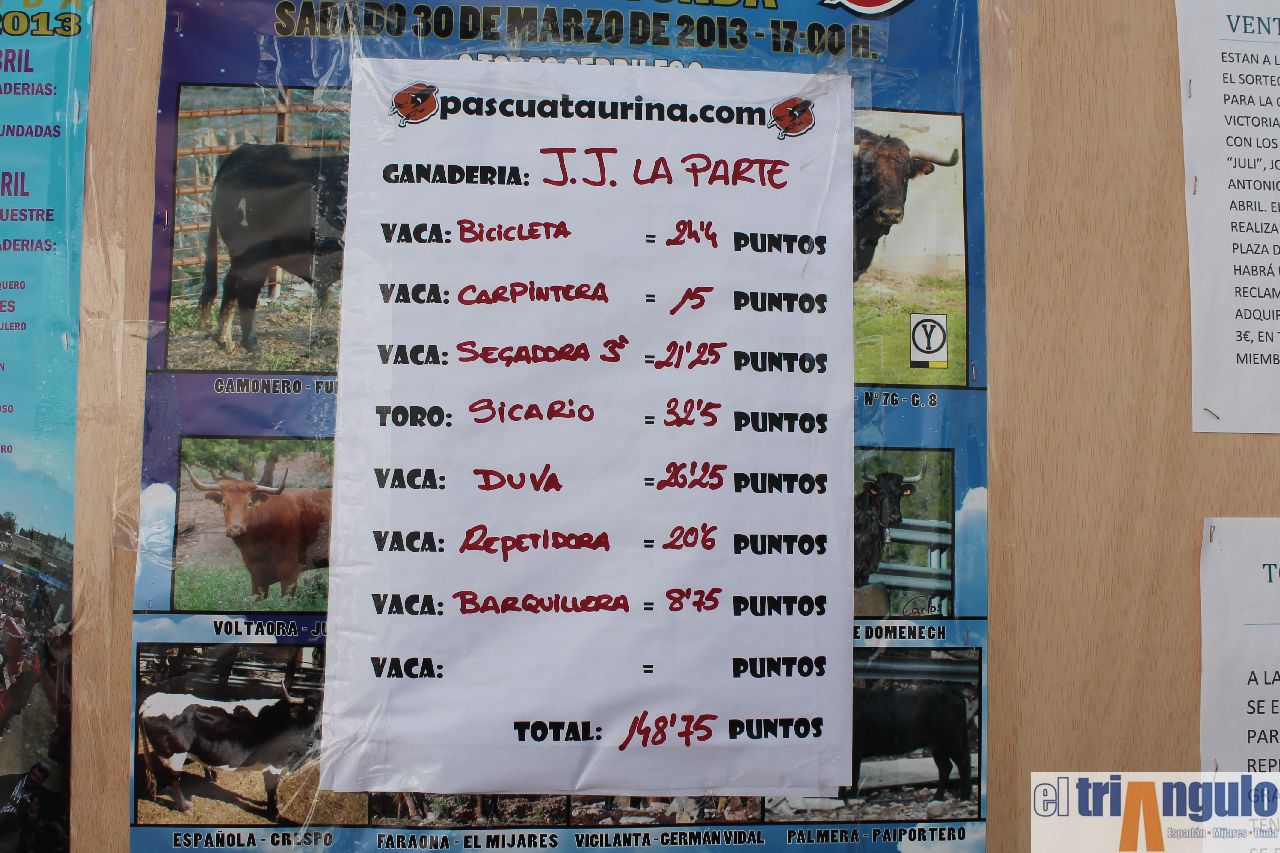 SABADO 30 DE MARZO DE 2013 - 17:00 H.
pascuataurina.com
GANADERIA: J.J. LA PARTE
VACA: BICICLETA = 24'4 PUNTOS
VACA: CARPINTERA = 15 PUNTOS
VACA: SEGADORA 3ª = 21'25 PUNTOS
TORO: SICARIO = 32'5 PUNTOS
VACA: DUVA = 26'25 PUNTOS
VACA: REPETIDORA = 20'6 PUNTOS
VACA: BARQUILLERA = 8'75 PUNTOS
VACA: = PUNTOS
TOTAL: 148'75 PUNTOS
CAMONERO - FU
- Nº 76 - G. 8
Y
VOLTAORA - JU
E DOMENECH
Carlos
ESPAÑOLA - CRESPO
FARAONA - EL MIJARES
VIGILANTA - GERMÁN VIDAL
PALMERA - PAIPORTERO
2013
BRIL
ADERIAS:
UNDADAS
RIL
UESTRE
ADERIAS:
QUERO
ES
ULERO
OSO
RO
VENT
ESTAN A L
EL SORTE
PARA LA
VICTORIA
CON LOS
"JULI", JO
ANTONIO
ABRIL. EL
REALIZA
PLAZA D
HABRÁ
RECLAM
ADQUIR
3€, EN
MIEMB
TO
A LA
SE E
PAR
REPR
GRA
TEN
SE
el triangulo
Espadán · Mijares · Duda